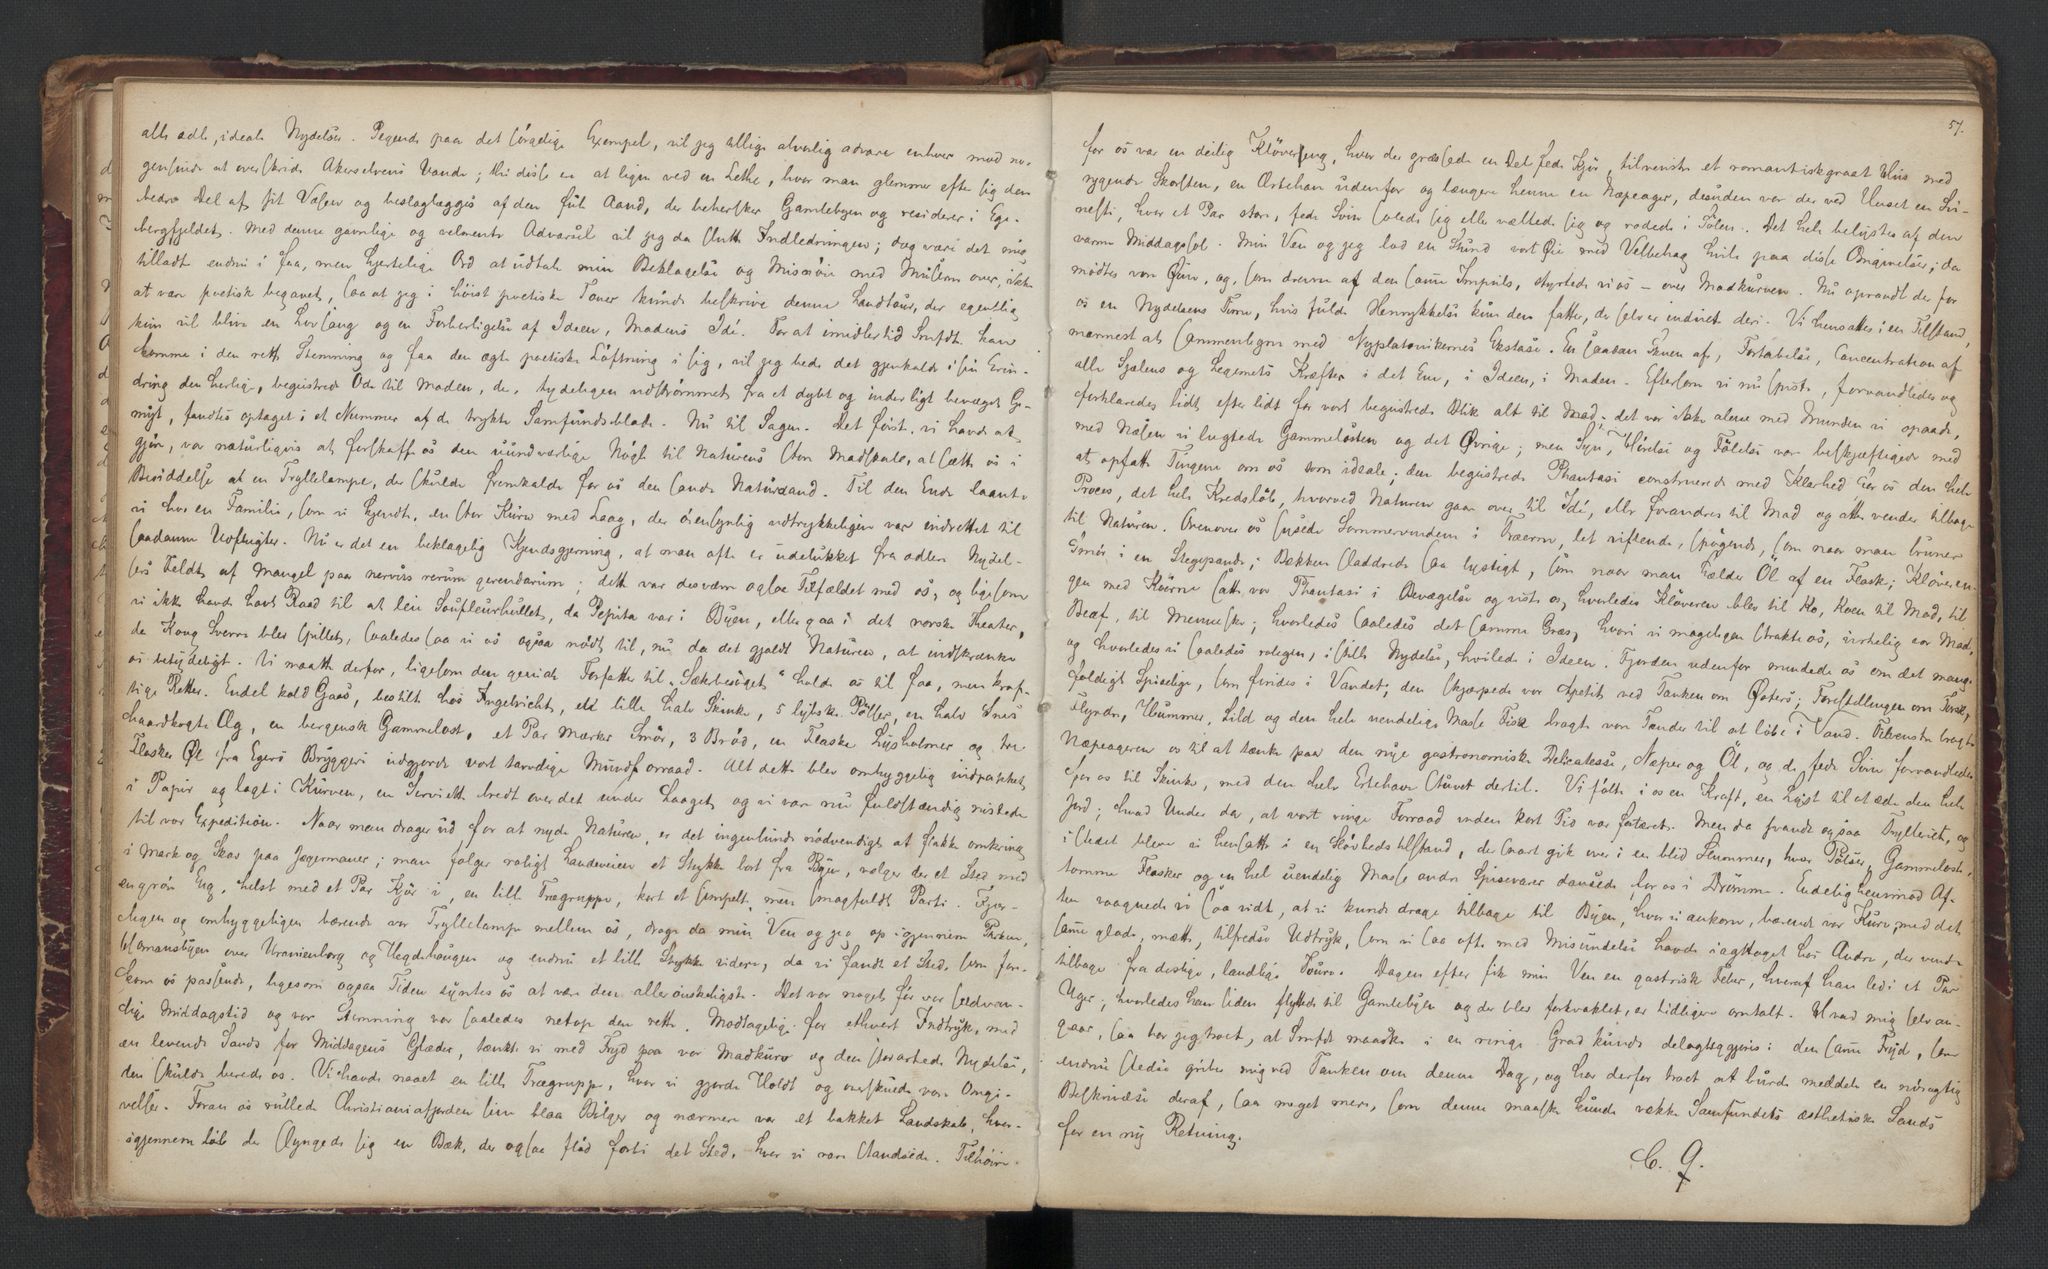 alle ædle, ideale Nydelser. Pegende paa det sörgelige Exempel, vil jeg tillige alvorlig advare enhver mod no-
gensinde at overskride Akerselvens Vande; thi disse er at ligne ved en Lethe, hvor man glemmer efter sig den
bedre Del af sit Væsen og beslaglægges af den fule Aand, der behersker Gamlebyen og residerer i Ege-
bergfjeldet. Med denne gavnlige og velmente Advarsel vil jeg da slutte Indledningen; dog være det mig
tilladt endnu i faa, men hjertelige Ord at udtale min Beklagelse og Mismod med Muserne over, ikke
at være poetisk begavet, saa at jeg i höist poetiske Toner kunde beskrive denne Landtour, der egentlig
kun vil blive en Lovsang og en Forherligelse af Ideen, Madens Idé. For at imidlertid Smfdt. kan
komme i den rette Stemning og faa den ægte poetiske Löftning i sig, vil jeg bede det gjenkalde i sin Erin-
dring den herlige, begeistrede Ode til Maden, der, tydeligen udströmmet fra et dybt og inderligt bevæget Ge-
myt, fandtes optaget i et Nummer af de trykte Samfundsblade. Nu til Sagen. Det förste, vi havde at
gjöre, var naturligvis at forskaffe os den uundværlige Nögle til Naturens store Madskale, at sætte os i
Besiddelse af en Tryllelampe, der skulde fremkalde for os den sande Naturaand. Til den Ende laante
vi hos en Familie, som vi kjendte, en stor Kurv med Laag, der öiensynlig udtrykkeligen var indrettet til
saadanne Udflugter. Nu er det en beklagelig Kjendsgjerning, at man ofte er udelukket fra ædlere Nydel-
ser heldt af Mangel paa nervus rerum gerendarum; dette var desværre ogsaa Tilfældet med os, og ligesom
vi ikke havde havt Raad til at leie Souffleurhullet, da Pepita var i Byen, eller gaa i det norske Theater,
da Kong Sverre blev spillet, saaledes saa vi os ogsaa nödt til, nu da det gjaldt Naturen, at indskrænke
os betydeligt. Vi maatte derfor, ligesom den geniale Forfatter til „Sæterbesöget“ holde os til faa, men kraf-
tige Retter. Endel kold Gaas, bestilt hos Ingebricht, en lille halv Skinke, 5 tydske Pölser, en halv Snes
haardkogte Æg, en bergensk Gammelost, et Par Mærker Smör, 3 Bröd, en Flaske Lysholmer og tre
Flasker Øl fra Egers Bryggeri udgjorde vort tarvelige Mundforraad. Alt dette blev omhyggelig indpakket
i Papir og lagt i Kurven, en Serviette bredt over det under Laaget, og vi var nu fuldstændig rustede
til vor Expedition. Naar man drager ud for at nyde Naturen, er det ingenlunde nödvendigt at flakke omkring
i Mark og Skov paa Jægermaner; man fölger roligt Landeveien et Stykke bort fra Byen, vælger der et Sted med
en grön Eng, helst med et Par Kjör i, en lille Trægruppe, kort et simpelt, men smagfuldt Parti. Kjær-
ligen og omhyggeligen bærende vor Tryllelampe mellem os, drage da min Ven og jeg op igjennem Parken,
Homansbyen over Uranienborg og Hegdehaugen og endnu et lille Stykke videre, da vi fandt et Sted, som fore-
kom os passende, ligesom ogsaa Tiden syntes os at være den allerönskeligste. Det var noget för vor sædvan-
lige Middagstid og vor Stemning var saaledes netop den rette. Modtagelige for ethvert Indtryk, med
en levende Sands for Middagens Glæder, tænkte vi med Fryd paa vor Madkurv og den storartede Nydelse,
den skulde berede os. Vi havde naaet en lille Trægruppe, hvor vi gjorde Holdt og overskuede vore Omgi-
velser. Foran os rullede Christianiafjorden sine blaa Bölger og nærmere var et bakket Landskab, hvor-
igjennem löb der slyngede sig en Bæk, der ogsaa flöd forbi det Sted, hvor vi vare standsede. Tilhöire
57.
for os var en deilig Klövereng, hvor der græssede en Del fede Kjör, tilvenstre et romantiskgraat Hus med
rygende Skorsten, en Ærtehave udenfor og længere henne en Næpeager, desuden var der ved Huset en Svi-
nesti, hvor et Par store, fede Svin solede sig eller væltede sig og rodede i Sölen. Det hele belystes af den
varme Middagssol. Min Ven og jeg lod en Stund vort Øie med Velbehag hvile paa disse Omgivelser; da
mödtes vore Øine, og, som drevne af den samme Impuls, styrtede vi os – over Madkurven. Nu oprandt der for
os en Nydelsens Time, hvis fulde Henrykkelse kun den fatter, der selv er indviet deri. Vi hensattes i en Tilstand,
nærmest at sammenligne med Nyplatonikernes Ekstase. En saadan Skuen af, Fortabelse, Concentration af
alle Sjælens og Legemets Kræfter i det Ene, i Ideen, i Maden. Eftersom vi nu spiste, forvandledes og
forklaredes lidt efter lidt for vort begeistrede Blik alt til Mad; det var ikke alene med Munden vi spiste,
med Næsen vi lugtede Gammelosten og det Øvrige; men Syn, Hörelse og Fölelse var beskjæftigede med
at opfatte Tingene om os som ideale; den begeistrede Phantasi construerede med Klarhed for os den hele
Proces, det hele Kredslöb, hvorved Naturen gaar over til Idé, eller forandres til Mad og atter vender tilbage
til Naturen. Ovenover os susede Sommervinden i Træerne, let viftende, spögende, som naar man bruner
Smör i en Stegepande; Bækken sladdrede saa lystigt, som naar man hælder Öl af en Flaske; Klöveren-
gen med Köerne satte vor Phantasi i Bevægelse og viste os, hvorledes Klöveren blev til Ko, Koen til Mad, til
Beaf, til Mennesker; hvorledes saaledes det samme Græs, hvori vi mageligen strakte os, virkelig var Mad,
og hvorledes vi saaledes roligen, i stille Nydelse, hvilede i Ideen. Fjorden udenfor mindede os om det mang-
foldigt Spiselige, som findes i Vandet; den skjærpede vor Apetit ved Tanken om Østers; Forestillingen om Torsk,
Flyndre, Hummer, Sild og den hele uendelige Masse Fisk bragte vore Tænder til at löbe i Vand. Tilvenstre bragte
Næpeageren os til at tænke paa den nye gastronomiske Delicatesse, Næper og Öl, og de fede Svin forvandledes
for os til Skinke, med den hele Ertehave stuvet dertil. Vi fölte i os en Kraft, en Lyst til at æde den hele
Jord; hvad Under da, at vort ringe Forraad inden kort Tid var fortæret. Men da svandt ogsaa Trylleriet, og
istedet bleve vi hensatte i en Slövhedstilstand, der snart gik over i en blid Slummer, hvor Pölser, Gammelost,
tomme Flasker og en hel uendelig Masse andre Spisevarer dansede for os i Drömme. Endelig henimod Af-
ten vaagnede vi saa vidt, at vi kunde drage tilbage til Byen, hvor vi ankom, bærende vor Kurv, med det
samme glade, mætte, tilfredse Udtryk, som vi saa ofte med Misundelse havde iagttaget hos Andre, der vendte
tilbage fra deslige, landlige Toure. Dagen efter fik min Ven en gastrisk Feber, hvoraf han led i et Par
Uger; hvorledes han siden flyttede til Gamlebyen og der blev forkvaklet, er tidligere omtalt. Hvad mig selv an-
gaar, saa har jeg troet, at Smfdt maaske i en ringe Grad kunde delagtiggjöres i den samme Fryd, som
endnu stedse griber mig ved Tanken om denne Dag, og har derfor troet at burde meddele en nöiagtig
Beskrivelse deraf, saa meget mere, som denne maaske kunde vække Samfundets æsthetiske Sands
for en ny Retning.
C. Q.